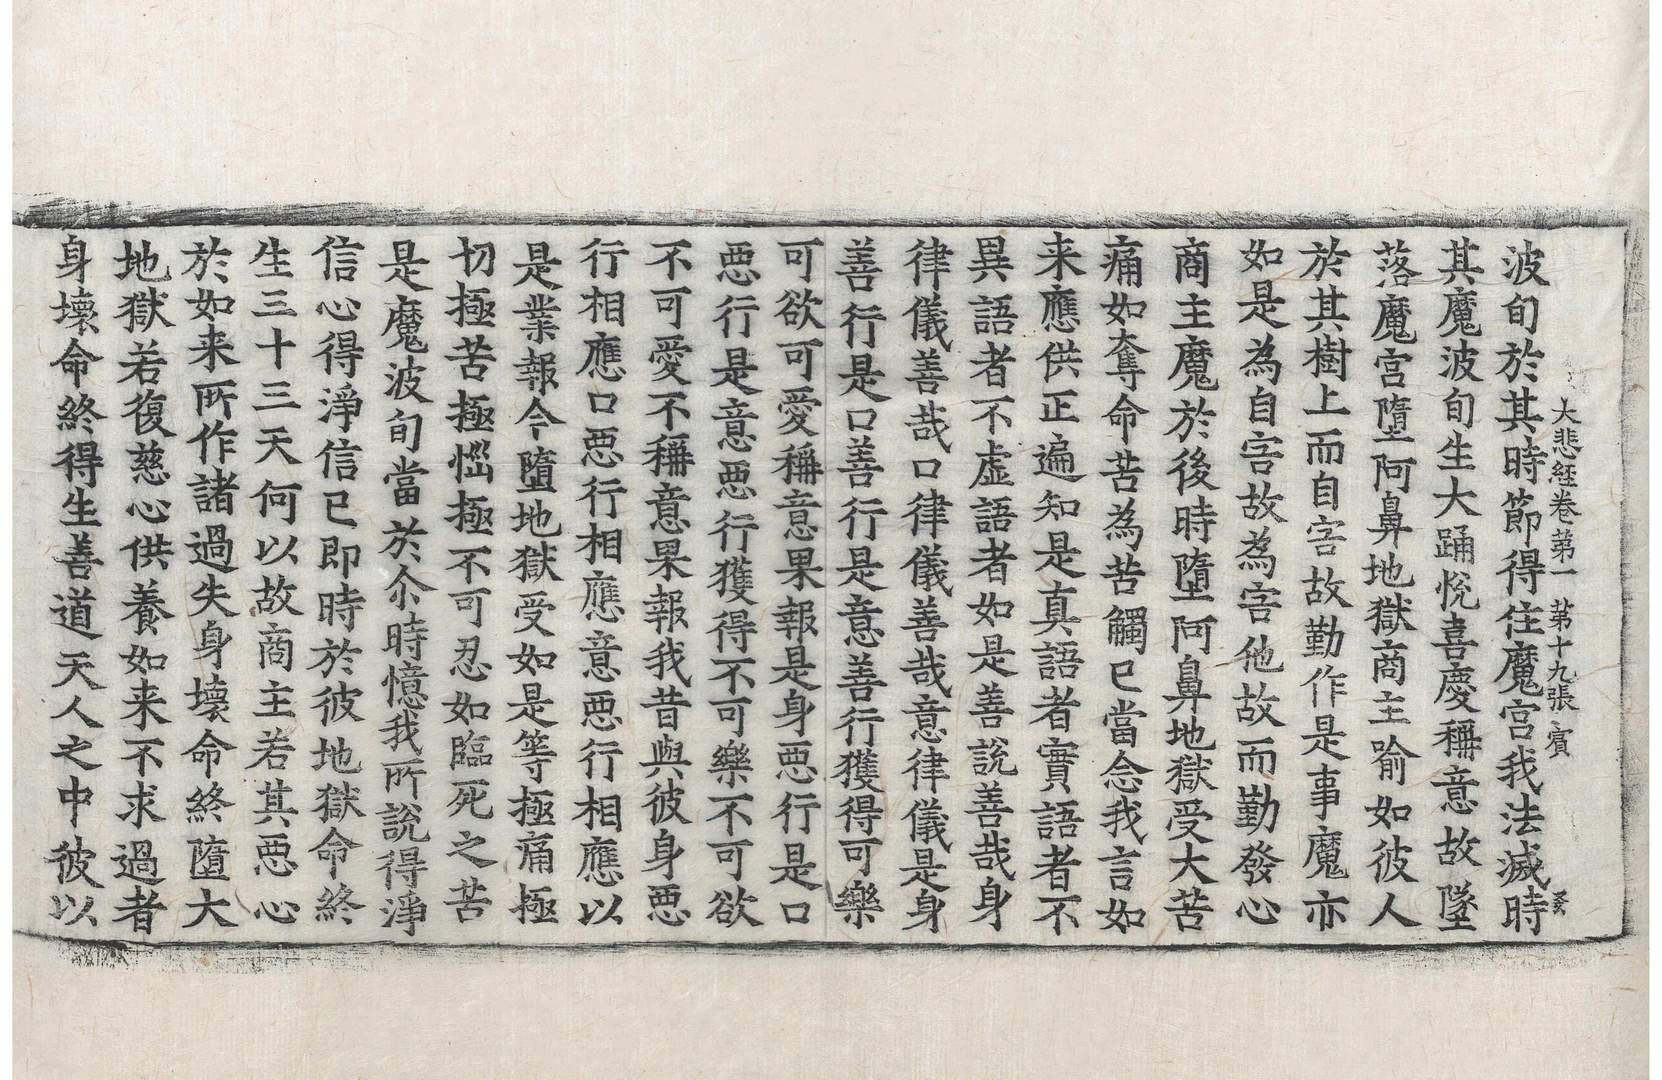 大悲経卷第一 第十九張 賓
波旬於其時節得住魔宮我法滅時
其魔波旬生大踊悅喜慶稱意故墜
落魔宮墮阿鼻地獄商主喻如彼人
於其樹上而自害故勤作是事魔亦
如是為自害故為害他故而勤發心
商主魔於後時墮阿鼻地獄受大苦
痛如奪命苦為苦觸已當念我言如
来應供正遍知是真語者實語者不
異語者不虛語者如是善說善哉身
律儀善哉口律儀善哉意律儀是身
善行是口善行是意善行獲得可樂
可欲可愛稱意果報是身惡行是口
惡行是意惡行獲得不可樂不可欲
不可愛不稱意果報我昔與彼身惡
行相應口惡行相應意惡行相應以
是業報今墮地獄受如是等極痛極
切極苦極惱極不可忍如臨死之苦
是魔波旬當於尒時憶我所說得淨
信心得淨信已即時於彼地獄命終
生三十三天何以故商主若其惡心
於如来所作諸過失身壞命終墮大
地獄若復慈心供養如来不求過者
身壞命終得生善道天人之中彼以